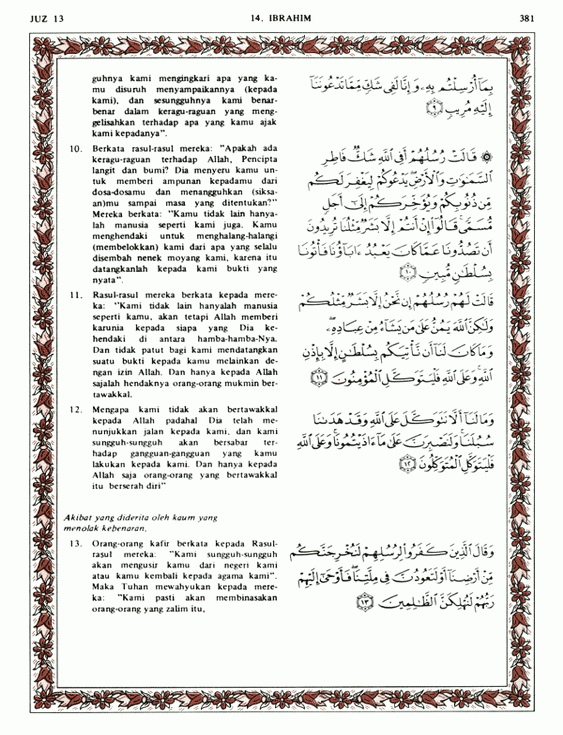 JUZ 13
14. IBRAHIM
381
guhnya kami mengingkari apa yang ka-
mu disuruh menyampaikannya (kepada
kami), dan sesungguhnya kami benar-
benar dalam keragu-raguan yang meng-
gelisahkan terhadap apa yang kamu ajak
kami kepadanya".
10. Berkata rasul-rasul mereka: "Apakah ada
keragu-raguan terhadap Allah, Pencipta
langit dan bumi? Dia menyeru kamu un-
tuk memberi ampunan kepadamu dari
dosa-dosamu dan menangguhkan (siksa-
an)mu sampai masa yang ditentukan?"
Mereka berkata: "Kamu tidak lain hanya-
lah manusia seperti kami juga. Kamu
menghendaki untuk menghalang-halangi
(membelokkan) kami dari apa yang selalu
disembah nenek moyang kami, karena itu
datangkanlah kepada kami bukti yang
nyata".
11. Rasul-rasul mereka berkata kepada mere-
ka: "Kami tidak lain hanyalah manusia
seperti kamu, akan tetapi Allah memberi
karunia kepada siapa yang Dia ke-
hendaki di antara hamba-hamba-Nya.
Dan tidak patut bagi kami mendatangkan
suatu bukti kepada kamu melainkan de-
ngan izin Allah. Dan hanya kepada Allah
sajalah hendaknya orang-orang mukmin ber-
tawakkal.
12. Mengapa kami tidak akan bertawakkal
kepada Allah padahal Dia telah me-
nunjukkan jalan kepada kami, dan kami
sungguh-sungguh akan bersabar ter-
hadap gangguan-gangguan yang kamu
lakukan kepada kami. Dan hanya kepada
Allah saja orang-orang yang bertawakkal
itu berserah diri"
Akibat yang diderita oleh kaum yang
menolak kebenaran.
13. Orang-orang kafir berkata kepada Rasul-
rasul mereka: "Kami sungguh-sungguh
akan mengusir kamu dari negeri kami
atau kamu kembali kepada agama kami".
Maka Tuhan mewahyukan kepada mere-
ka: "Kami pasti akan membinasakan
orang-orang yang zalim itu,
بِمَآ أُرْسِلْتُم بِهِۦ وَإِنَّا لَفِى شَكٍّ مِّمَّا تَدْعُونَنَآ
إِلَيْهِ مُرِيبٍ ٩
۞ قَالَتْ رُسُلُهُمْ أَفِى ٱللَّهِ شَكٌّ فَاطِرِ
ٱلسَّمَٰوَٰتِ وَٱلْأَرْضِ يَدْعُوكُمْ لِيَغْفِرَ لَكُم
مِّن ذُنُوبِكُمْ وَيُؤَخِّرَكُمْ إِلَىٰٓ أَجَلٍ
مُّسَمًّى قَالُوٓا۟ إِنْ أَنتُمْ إِلَّا بَشَرٌ مِّثْلُنَا تُرِيدُونَ
أَن تَصُدُّونَا عَمَّا كَانَ يَعْبُدُ ءَابَآؤُنَا فَأْتُونَا
بِسُلْطَٰنٍ مُّبِينٍ ١٠
قَالَتْ لَهُمْ رُسُلُهُمْ إِن نَّحْنُ إِلَّا بَشَرٌ مِّثْلُكُمْ
وَلَٰكِنَّ ٱللَّهَ يَمُنُّ عَلَىٰ مَن يَشَآءُ مِنْ عِبَادِهِۦ
وَمَا كَانَ لَنَآ أَن نَّأْتِيَكُم بِسُلْطَٰنٍ إِلَّا بِإِذْنِ
ٱللَّهِ وَعَلَى ٱللَّهِ فَلْيَتَوَكَّلِ ٱلْمُؤْمِنُونَ ١١
وَمَا لَنَآ أَلَّا نَتَوَكَّلَ عَلَى ٱللَّهِ وَقَدْ هَدَىٰنَا
سُبُلَنَا وَلَنَصْبِرَنَّ عَلَىٰ مَآ ءَاذَيْتُمُونَا وَعَلَى ٱللَّهِ
فَلْيَتَوَكَّلِ ٱلْمُتَوَكِّلُونَ ١٢
وَقَالَ ٱلَّذِينَ كَفَرُوا۟ لِرُسُلِهِمْ لَنُخْرِجَنَّكُم
مِّنْ أَرْضِنَآ أَوْ لَتَعُودُنَّ فِى مِلَّتِنَا فَأَوْحَىٰٓ إِلَيْهِمْ
رَبُّهُمْ لَنُهْلِكَنَّ ٱلظَّٰلِمِينَ ١٣